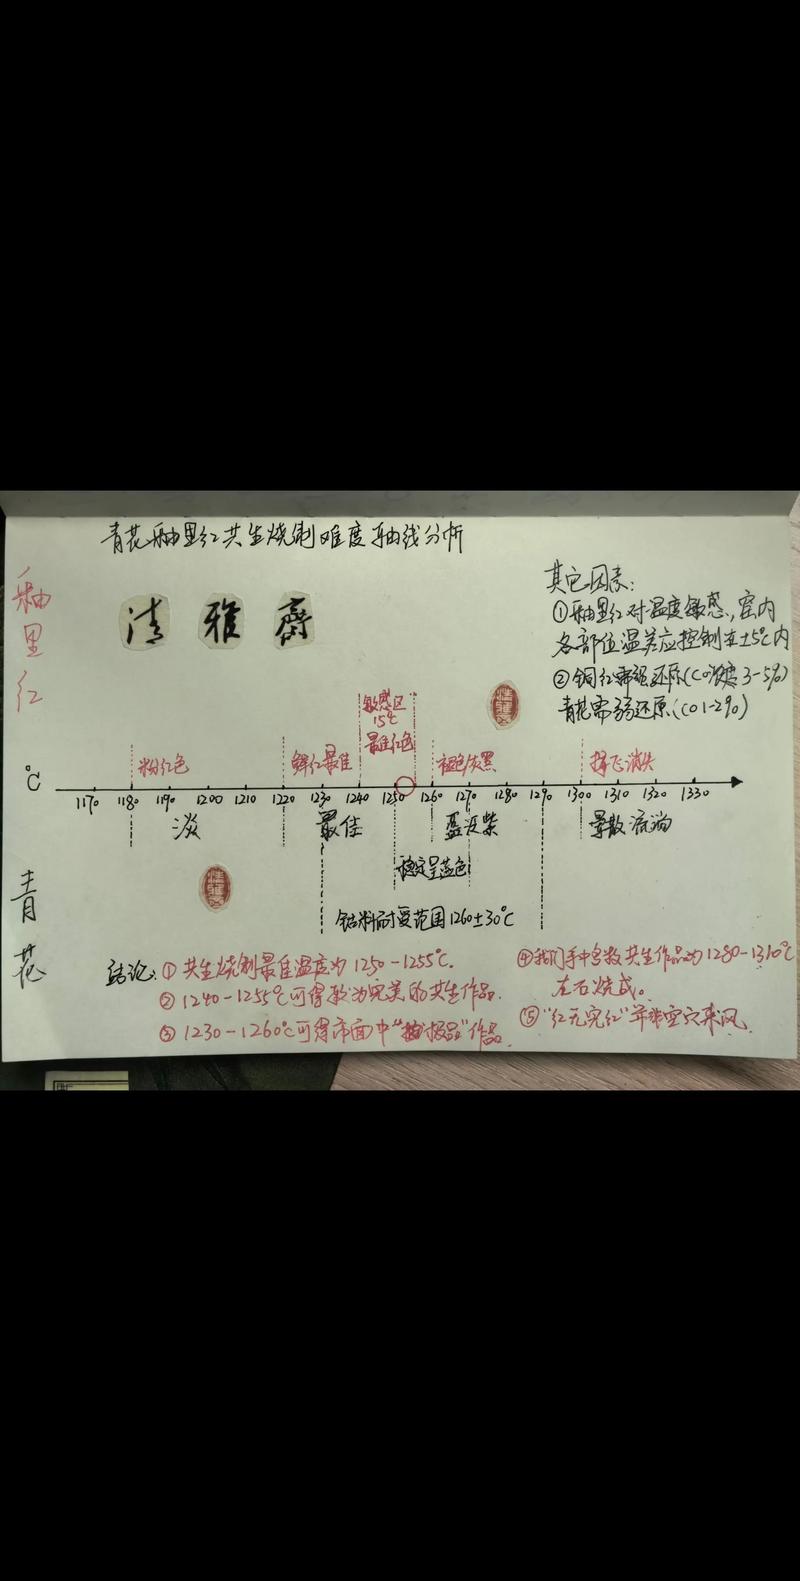 青花釉里红共生烧制难度轴线分析
清 雅 斋
釉里红
其它因素:
①釉里红对温度敏感,窑内
各部位温差应控制在±5℃内
②铜红需强还原(CO浓度3-5%)
青花需弱还原(CO1-2%)
敏感区
15℃
最佳红色
粉红色
鲜红最佳
褪色/灰黑
挥飞消失
℃
1170 1180 1190 1200 1210 1220 1230 1240 1250 1260 1270 1280 1290 1300 1310 1320 1330
淡
最佳
蓝泛紫
晕散流淌
稳定呈蓝色
钴料耐受范围1260±30℃
青花
结论:①共生烧制最佳温度为1250-1255℃.
②1240-1255℃可得较为完美的共生作品.
③1230-1260℃可得市面中“极品”作品.
④我们手中多数共生作品为1280-1310℃
左右烧成。
⑤“红无完红”并非空穴来风.